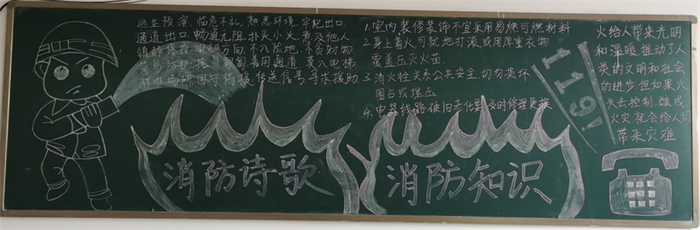 逃生预演 临危不乱 熟悉环境 牢记出口
通道出口 畅通无阻 扑灭小火 惠及他人
镇静 辨明方向 不入险地 不贪财物
莫入电梯
传送信号 寻求援助
消防诗歌
1.室内装修装饰不宜采用易燃可燃材料
2.身上着火可就地打滚或用厚重衣物
覆盖压灭火苗
3.消火栓关系公共安全,切勿损坏
圈占或埋压
4.电器线路破旧老化要及时修理更换
消防知识
119!
火给人带来光明
和温暖 推动了人
类的文明和社会
的进步 但如果火
失去控制 酿成
火灾就会给人们
带来灾难